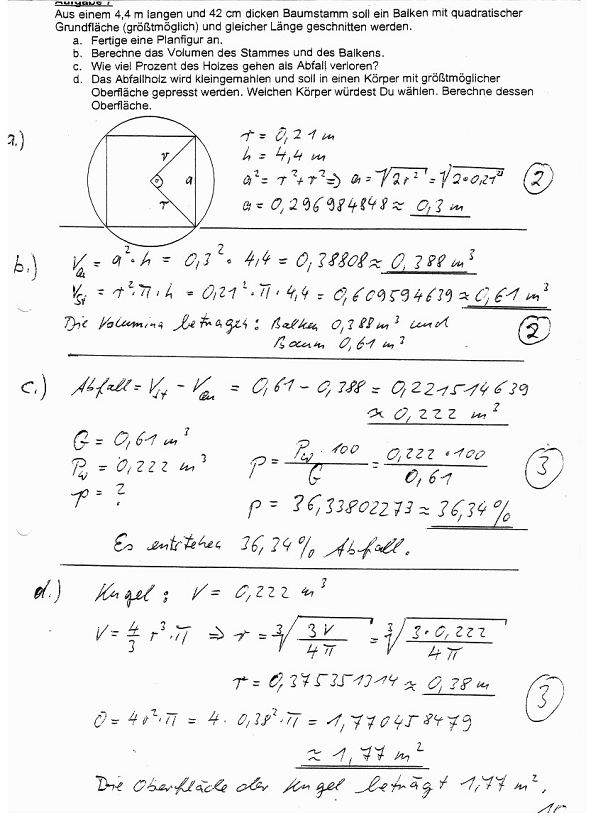 Aufgabe 7
Aus einem 4,4 m langen und 42 cm dicken Baumstamm soll ein Balken mit quadratischer
Grundfläche (größtmöglich) und gleicher Länge geschnitten werden.
a. Fertige eine Planfigur an.
b. Berechne das Volumen des Stammes und des Balkens.
c. Wie viel Prozent des Holzes gehen als Abfall verloren?
d. Das Abfallholz wird kleingemahlen und soll in einen Körper mit größtmöglicher
Oberfläche gepresst werden. Welchen Körper würdest Du wählen. Berechne dessen
Oberfläche.
a.)
r
r
a
r = 0,21 m
h = 4,4 m
a² = r² + r² ⇒ a = √2r² = √2·0,21²
a = 0,296984848 ≈ 0,3 m
2
b.) V_Ba = a²·h = 0,3²· 4,4 = 0,38808 ≈ 0,388 m³
V_St = r²·π·h = 0,21²·π·4,4 = 0,609594639 ≈ 0,61 m³
Die Volumina betragen: Balken 0,388 m³ und
Baum 0,61 m³
2
c.) Abfall = V_St - V_Ba = 0,61 - 0,388 = 0,221514639
≈ 0,222 m³
G = 0,61 m³
P_W = 0,222 m³
p = ?
p = P_W · 100 / G = 0,222 · 100 / 0,61
p = 36,33802273 ≈ 36,34 %
3
Es entstehen 36,34 % Abfall.
d.) Kugel: V = 0,222 m³
V = 4/3 r³·π ⇒ r = ³√(3V / 4π) = ³√(3·0,222 / 4π)
r = 0,375351314 ≈ 0,38 m
3
O = 4r²·π = 4 · 0,38²·π = 1,770458479
≈ 1,77 m²
Die Oberfläche der Kugel beträgt 1,77 m².